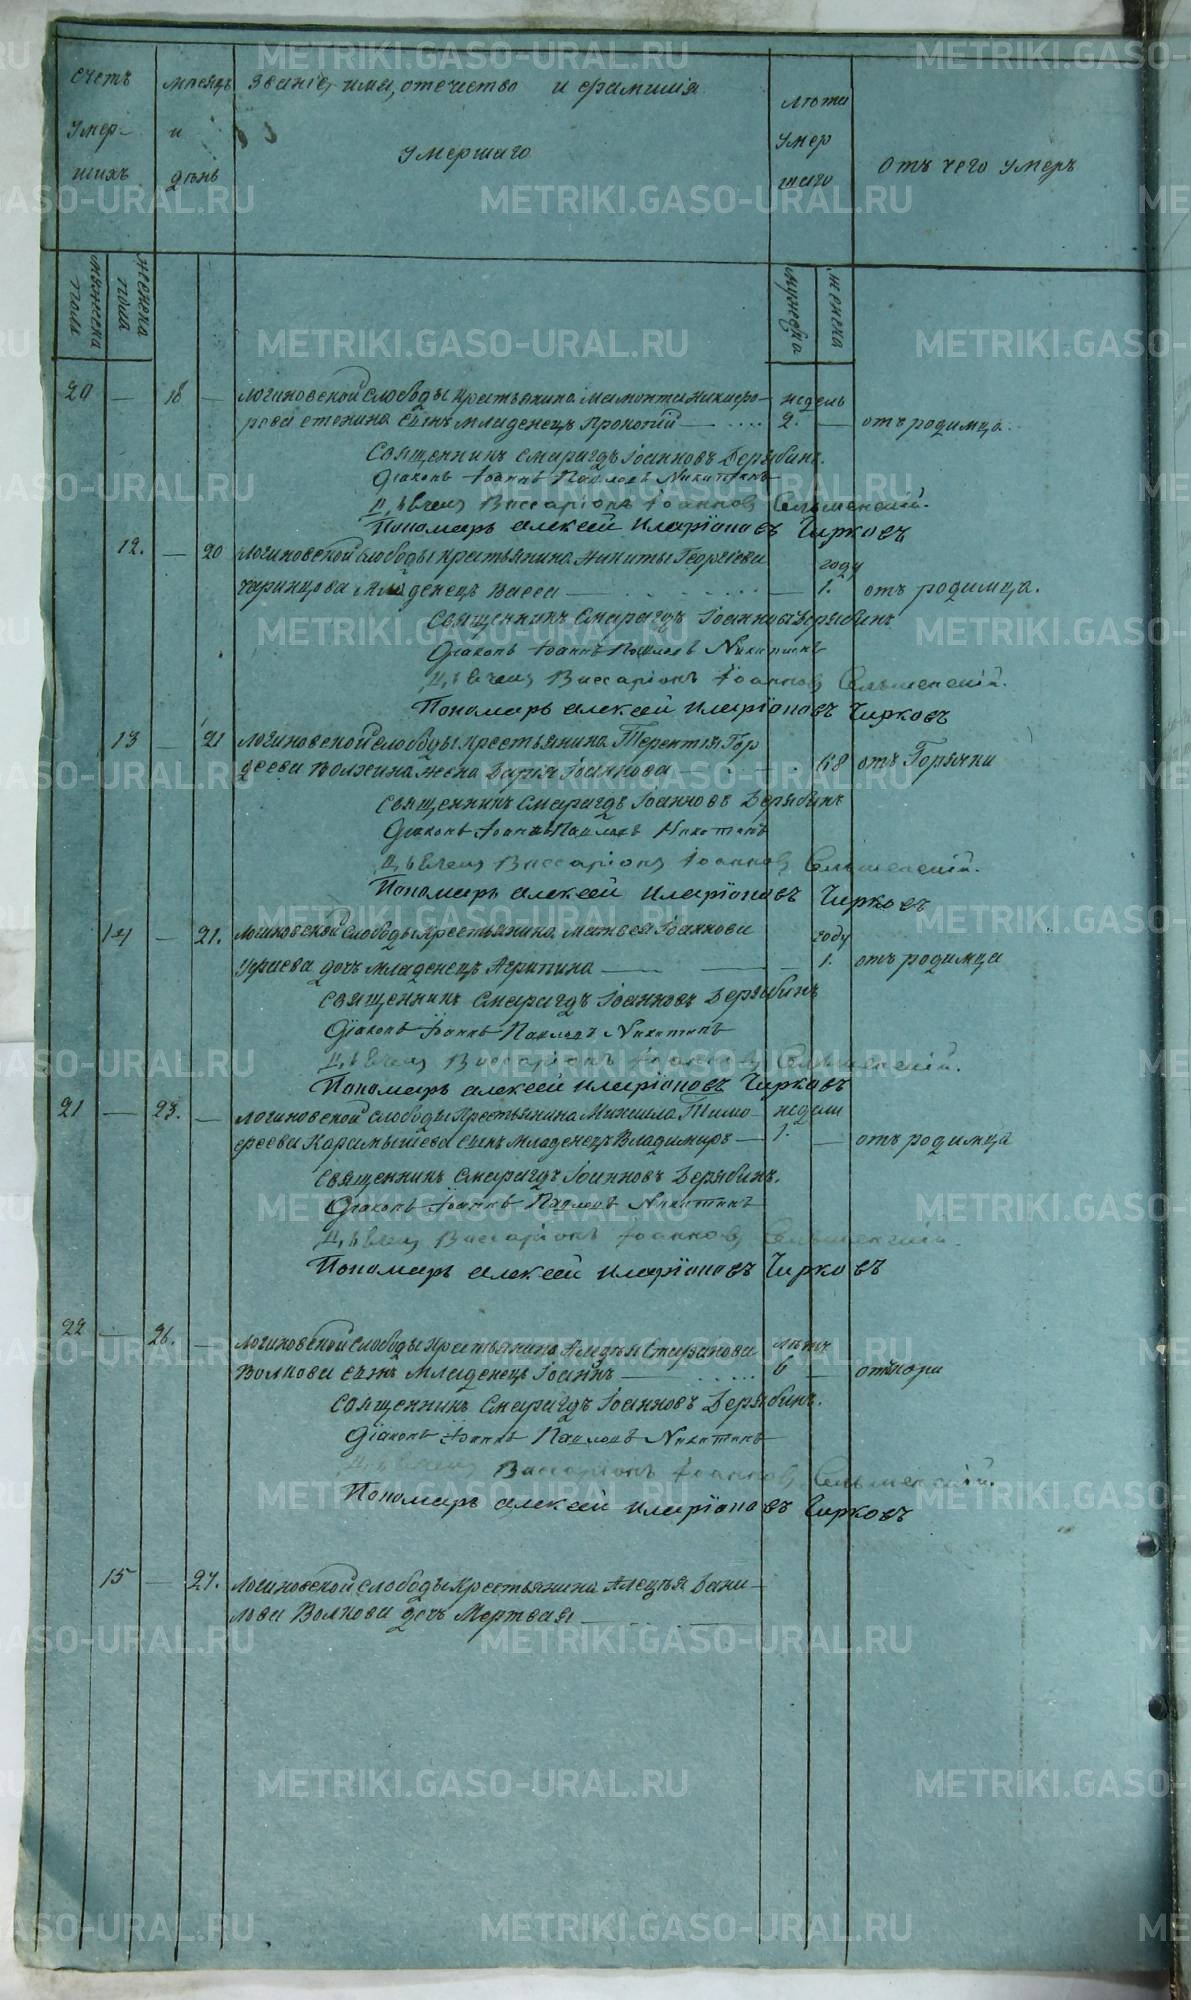 счетъ мѣсяцъ званіе, имя, отечество и фамилія лѣта
умер- и умершаго умер отъ чего умеръ
шихъ день шаго
мужеска пола женска пола мужеска женска
20 — 18 — Логиновской слободы крестьянина Мамонта Никифо- недель
рова сынъ младенецъ Прокопій — 2. — отъ родимца.
Священникъ Смарагдъ Іоанновъ Дерябинъ.
Діаконъ Іоаннъ Павловъ Никитинъ
Виссаріонъ Іоанновъ
Пономарь Алексей Иларіоновъ Чирковъ
12. — 20 Логиновской слободы крестьянина Никиты Георгіева году
младенецъ Васса — 1. отъ родимца.
Священникъ Смарагдъ Іоанновъ Дерябинъ
Діаконъ Іоаннъ Павловъ Никитинъ
Виссаріонъ Іоанновъ
Пономарь Алексей Иларіоновъ Чирковъ
13 — 21 Логиновской слободы крестьянина Терентія Гор
деева жена Дарія Іоаннова — 68 отъ Горячки
Священникъ Смарагдъ Іоанновъ Дерябинъ
Діаконъ Іоаннъ Павловъ Никитинъ
Виссаріонъ Іоанновъ
Пономарь Алексей Иларіоновъ Чирковъ
14 — 21. Логиновской слободы крестьянина Матвея Іоаннова году
дочь младенецъ Агрипина — 1. отъ родимца
Священникъ Смарагдъ Іоанновъ Дерябинъ
Діаконъ Іоаннъ Павловъ Никитинъ
Виссаріонъ Іоанновъ
Пономарь Алексей Иларіоновъ Чирковъ
21 — 23. — Логиновской слободы крестьянина Михаила Тимо- недели
феева Карамышева сынъ младенецъ Владимиръ — 1. — отъ родимца
Священникъ Смарагдъ Іоанновъ Дерябинъ.
Діаконъ Іоаннъ Павловъ Никитинъ
Виссаріонъ Іоанновъ
Пономарь Алексей Иларіоновъ Чирковъ
22 — 26. — Логиновской слободы крестьянина Стефанова лѣтъ
Волкова сынъ младенецъ Іоаннъ — 6 — отъ кори
Священникъ Смарагдъ Іоанновъ Дерябинъ.
Діаконъ Іоаннъ Павловъ Никитинъ
Виссаріонъ Іоанновъ
Пономарь Алексей Иларіоновъ Чирковъ
15 — 27. Логиновской слободы крестьянина Дани-
лова Волкова дочь Мертвая —
METRIKI.GASO-URAL.RU